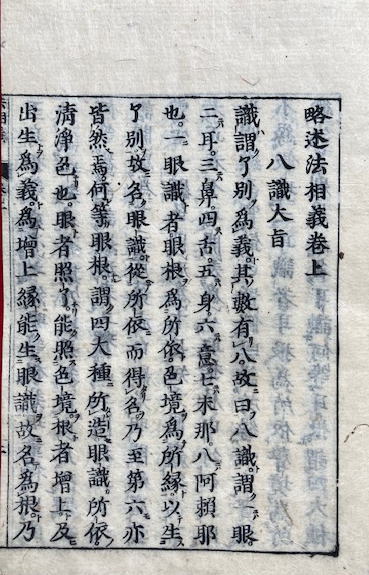 略述法相義卷上
八識大旨
識謂了別爲義其數有八故曰八識謂一眼
二耳三鼻四舌五身六意七末那八阿賴耶
也一眼識者眼根爲所依色境爲所緣以生
了別故名眼識從所依而得名乃至第六亦
皆然焉何等眼根謂四大種所造眼識所依
清淨色也眼者照了能照色境根者增上及
出生爲義爲增上緣能生眼識故名爲根乃